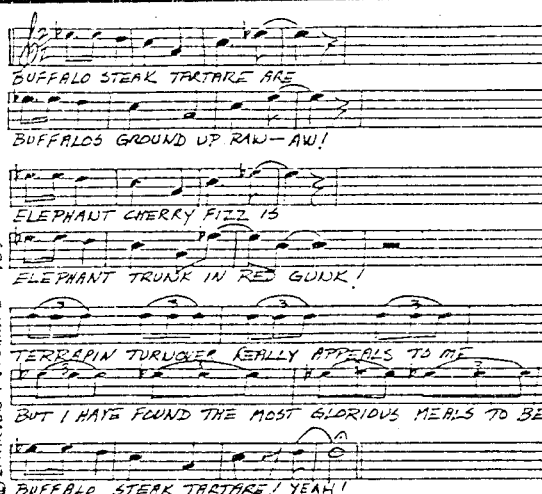 BUFFALO STEAK TARTARE ARE
BUFFALOS GROUND UP RAW-AW!
ELEPHANT CHERRY FIZZ IS
ELEPHANT TRUNK IN RED GUNK!
3 3 3 3
TERRAPIN TURNOVER REALLY APPEALS TO ME
3 3
BUT I HAVE FOUND THE MOST GLORIOUS MEALS TO BE
BUFFALO STEAK TARTARE! YEAH!